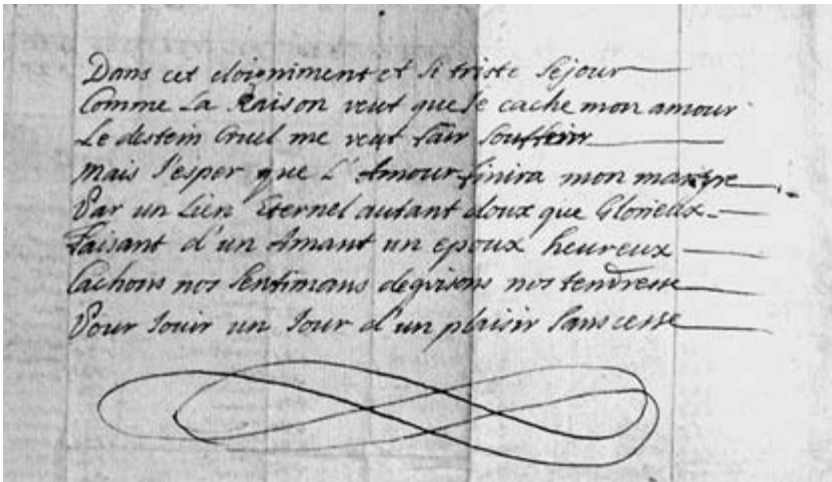 Dans cet eloigniment et si triste sejour
Comme La Raison veut que Je cache mon amour
Le destein Cruel me veut fair souffrir
Mais J'esper que L'Amour finira mon martyre
Par un Lien Eternel autant doux que Glorieux
Faisant d'un Amant un epoux heureux
Cachons nos sentimans deguisons nos tendresse
Pour Jouir un Jour d'un plaisir sans cesse